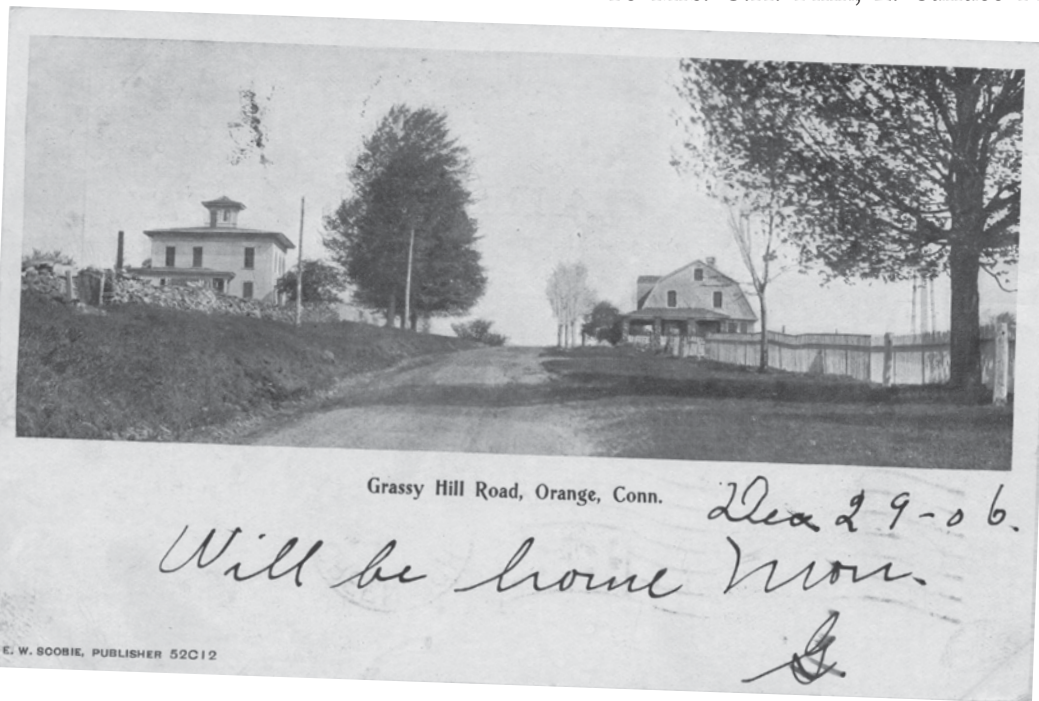 Grassy Hill Road, Orange, Conn.
Dec 29-06.
Will be home Mon.
G
E. W. SCOBIE, PUBLISHER 52C12